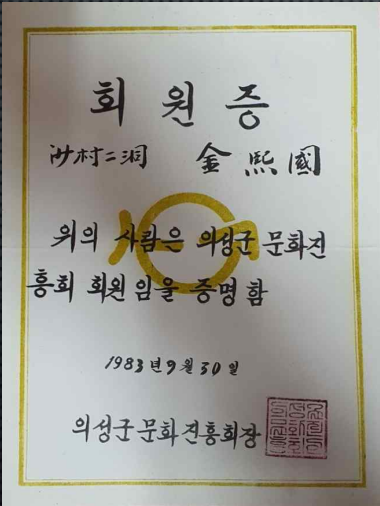 회원증
沙村二洞 金熙國
위의 사람은 의성군 문화진
흥회 회원임을 증명함
1983년 9월 30일
의성군문화진흥회장